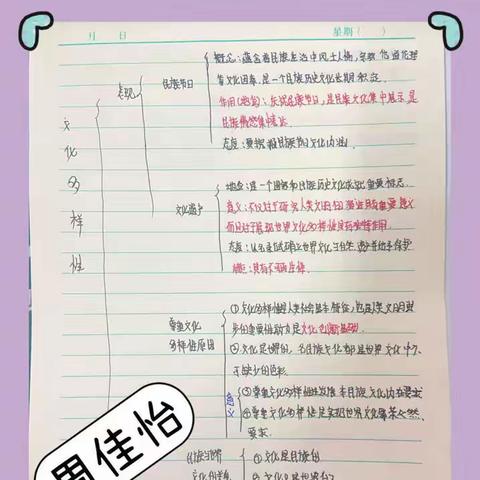 月 日 星期( )
文化多样性
表现
民族节日
概念:蕴含着民族生活中风土人情,宗教信仰道德伦理
等文化因素,是一个民族历史文化长期积淀。
作用(地位):庆祝民族节日,是民族文化集中展示,是
民族情感集中表达。
态度:要挖掘民族节日文化内涵。
文化遗产
地位:是一个国家和民族历史文化成就重要标志。
意义:不仅对于研究人类文明的演进具有重要意义
而且对于展现世界文化多样性具有独特作用
尊重文化
多样性原因
①文化多样性是人类社会基本特征,也是人类文明进
步的重要动力文化创新基础。
②文化是世界的,各民族文化都是世界文化中
不缺少的色彩。
意义
③尊重文化多样性是发展本民族文化内在要求
④尊重文化多样性是实现世界文化繁荣必然
要求。
周佳怡
民族与世界
文化的关系
①文化是民族的
②文化又是世界的